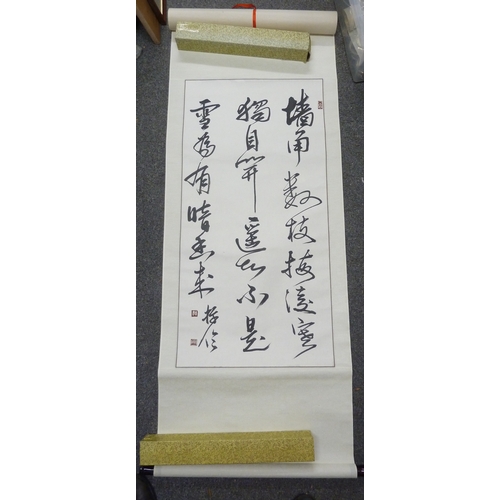 墙角数枝梅凌寒
独自开遥知不是
雪为有暗香来